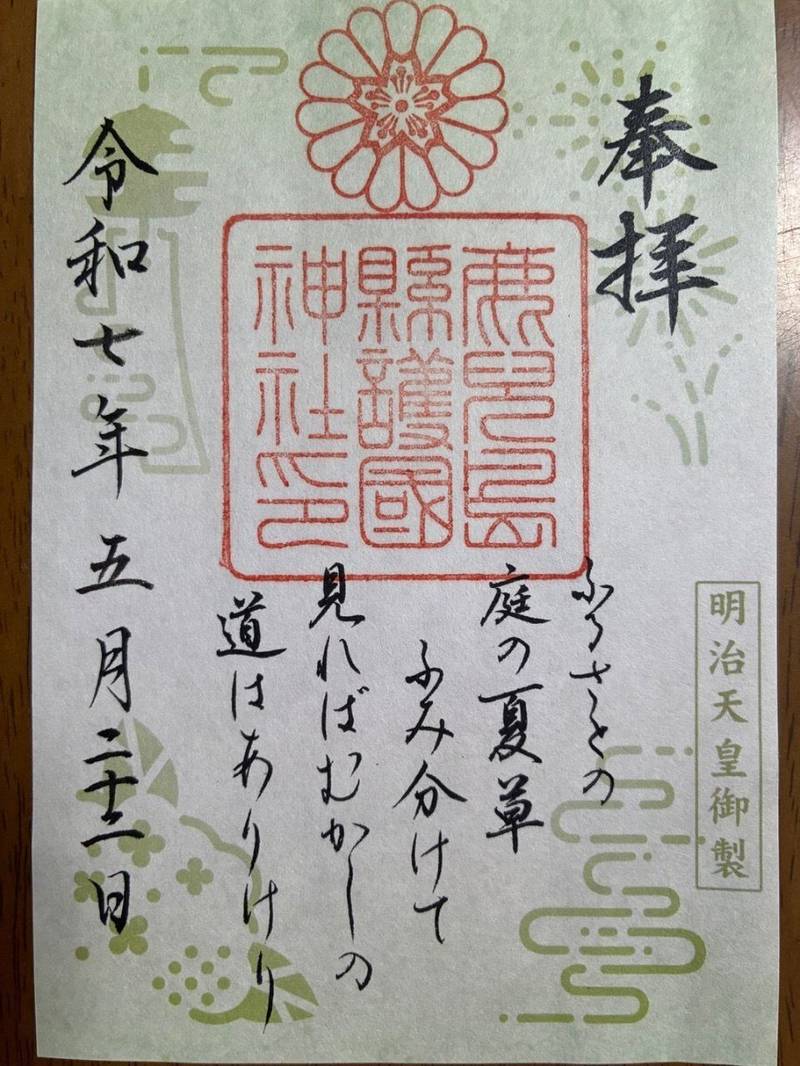 奉拝
鹿兒島
縣護國
神社印
明治天皇御製
ふるさとの
庭の夏草
ふみ分けて
見ればむかしの
道はありけり
令和七年五月二十二日